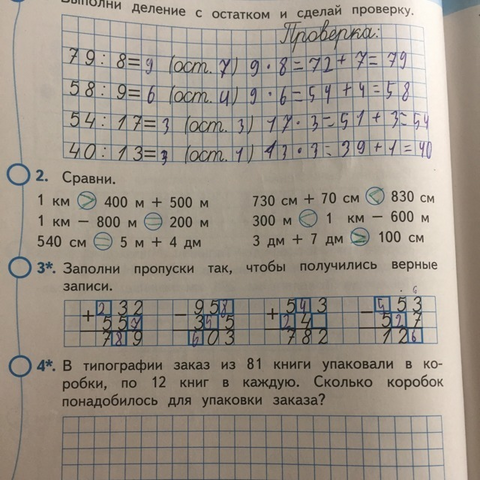 Выполни деление с остатком и сделай проверку.
Проверка:
79 : 8 = 9 (ост. 7) 9 · 8 = 72 + 7 = 79
58 : 9 = 6 (ост. 4) 9 · 6 = 54 + 4 = 58
54 : 17 = 3 (ост. 3) 17 · 3 = 51 + 3 = 54
40 : 13 = 3 (ост. 1) 13 · 3 = 39 + 1 = 40
2. Сравни.
1 км > 400 м + 500 м 730 см + 70 см < 830 см
1 км − 800 м = 200 м 300 м < 1 км − 600 м
540 см = 5 м + 4 дм 3 дм + 7 дм > 100 см
3*. Заполни пропуски так, чтобы получились верные
записи.
+ 232 − 958 + 543 − 453
557 355 24 527
789 603 782 126
4*. В типографии заказ из 81 книги упаковали в ко-
робки, по 12 книг в каждую. Сколько коробок
понадобилось для упаковки заказа?